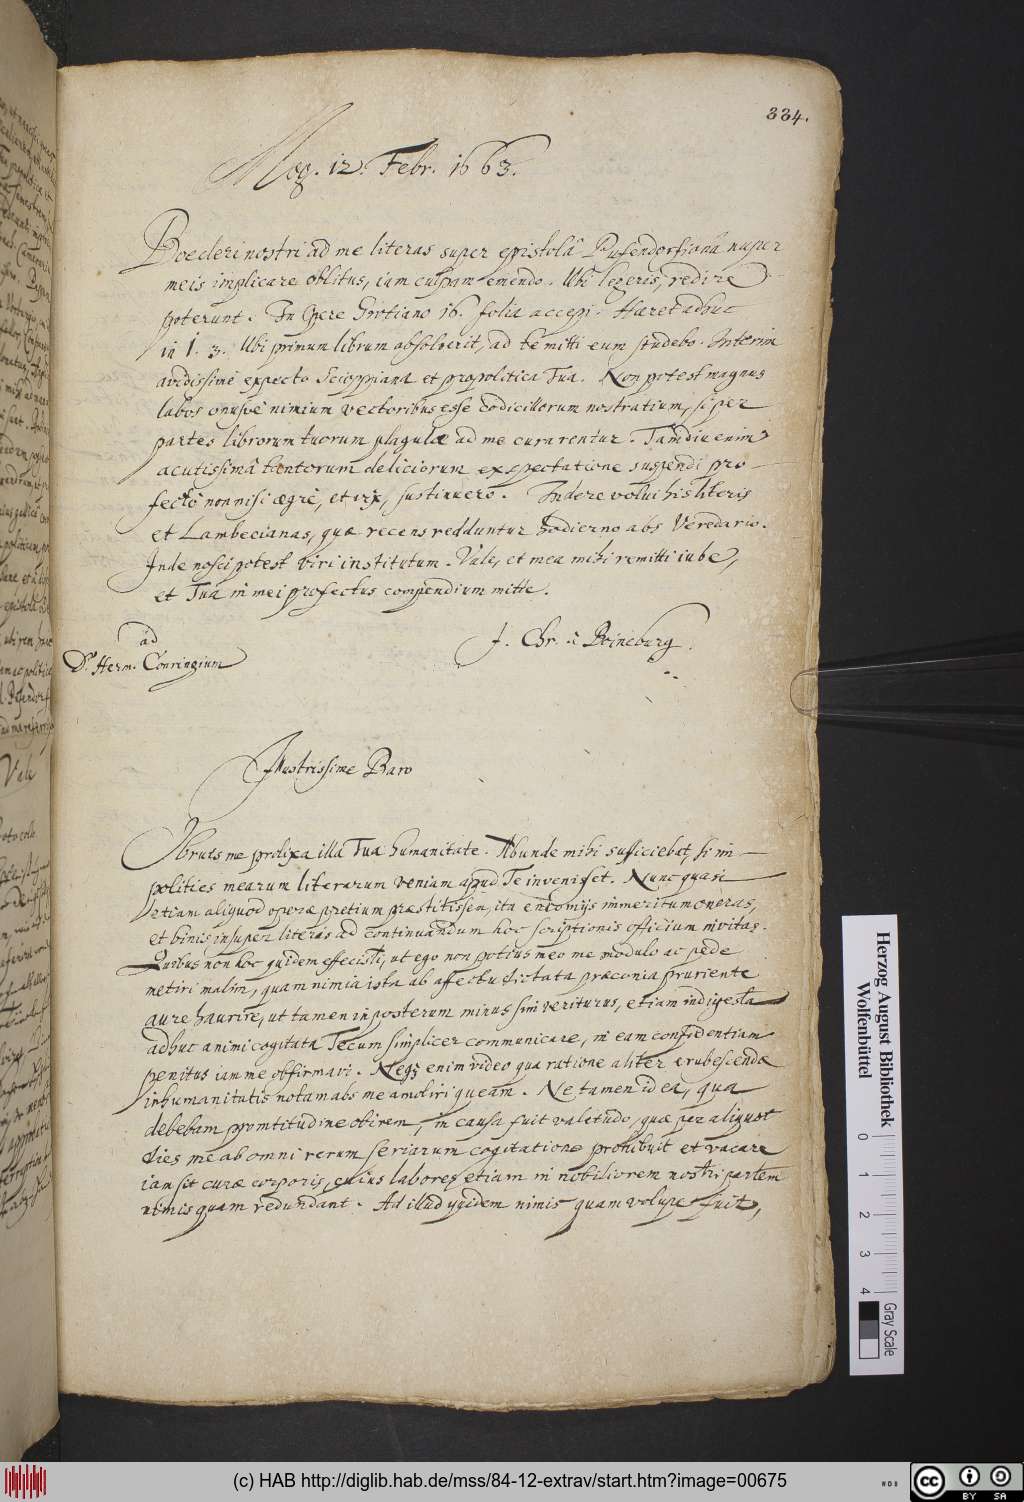 334.
Mog. 12. Febr. 1663.
Boecleri nostri ad me literas super epistolâ Pufendorfianâ nuper
meis implicare oblitus, iam culpam emendo. Ubi legeris, redire
poterunt. In Opere Grotiano 16. folia accepi. Haret adhuc
in l. 3. Ubi primum librum absolverit, ad te mitti eum studebo. Interim
avidissimè expecto Scioppiana et propolitica Tua. Non potest magnus
labos onusve nimium vectoribus esse codicillorum nostratium, si per
partes librorum tuorum plagulæ ad me curarentur. Tamdiu enim
acutissimâ tantorum deliciorum exspectatione suspendi pro-
fectò non nisi ægrè, et vix, sustinuero. Indere volui his literis
et Lambecianas, quæ recens redduntur hodierno abs Veredario.
Inde nosci potest viri institutum. Vale, et mea mihi remitti iube,
et Tua in mei profectus compendium mitte.
J. Chr. à Boineburg.
ad
Dn. Herm. Conringium
Illustrissime Baro
Obruis me prolixa illa Tua humanitate. Abunde mihi sufficiebat, si im-
polities mearum literarum veniam apud Te invenisset. Nunc quasi
etiam aliquod operæ pretium præstitissem, ita encomijs immeritum oneras,
et binis insuper literis ad continuandum hoc scriptionis officium invitas.
Quibus non hoc quidem effecisti, ut ego non potius meo me modulo ac pede
metiri malim, quam nimia ista ab affectu dictata præconia pruriente
aure haurire, ut tamen in posterum minus sim veriturus, etiam indigesta
adhuc animi cogitata Tecum simplicer communicare, in eam confidentiam
penitus iam me offirmavi. Neq; enim video qua ratione aliter erubescendæ
inhumanitatis notam abs me amoliri queam. Ne tamen id eâ, qua
debebam promtitudine obirem, in causa fuit valetudo, quæ per aliquot
dies me ab omni rerum seriarum cogitatione prohibuit et vacare
iam sit curæ corporis, cuius labores etiam in nobiliorem nostri partem
nimis quam redundant. Ad illud quidem nimis quam volupe fuit,
Herzog August Bibliothek
Wolfenbüttel
0 1 2 3 4
Gray Scale
(c) HAB http://diglib.hab.de/mss/84-12-extrav/start.htm?image=00675
cc BY SA